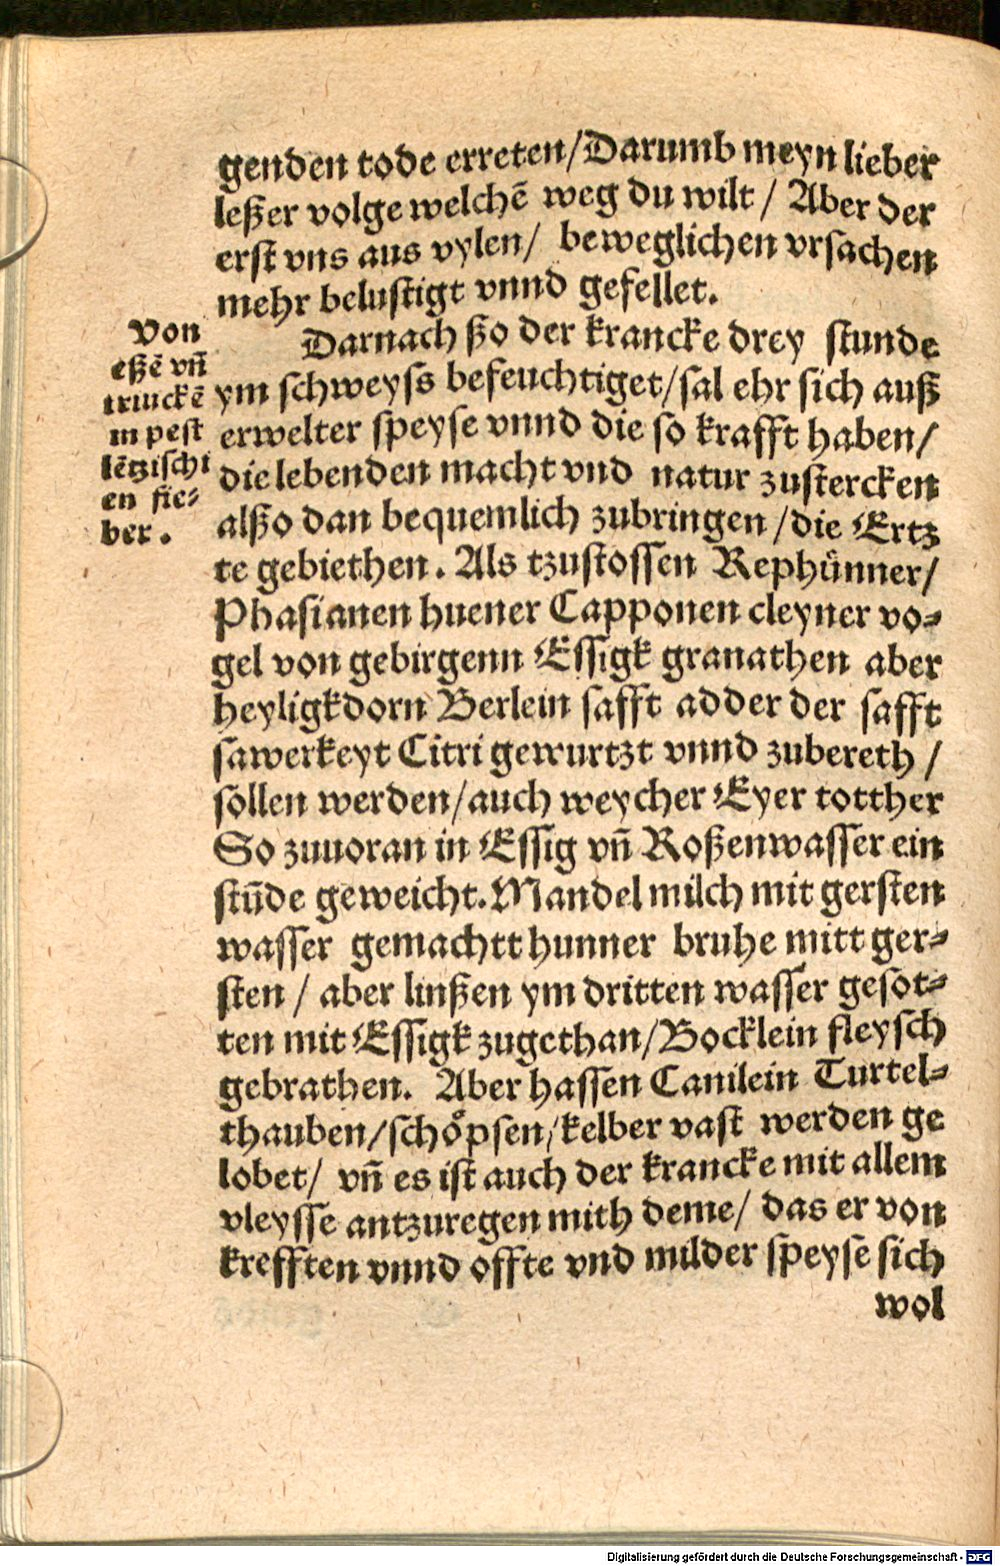 genden tode erreten/Darumb meyn lieber
leßer volge welchē weg du wilt / Aber der
erst vns aus vylen/ beweglichen vrsachen
mehr belustigt vnnd gefellet.
Von
eßē vñ
trinckē
in pest
lētzischt
en fie-
ber.
Darnach ßo der krancke drey stunde
ym schweyss befeuchtiget/sal ehr sich auß
erwelter speyse vnnd die so krafft haben/
die lebenden macht vnd natur zustercken
alßo dan bequemlich zubringen /die Ertz
te gebiethen. Als tzustossen Rephůnner/
Phasianen huener Capponen cleyner vo-
gel von gebirgenn Essigk granathen aber
heyligkdorn Berlein safft adder der safft
sawerkeyt Citri gewurtzt vnnd zubereth /
sollen werden/auch weycher Eyer totther
So zuuoran in Essig vñ Roßenwasser ein
stūde geweicht.Mandel milch mit gersten
wasser gemachtt hunner bruhe mitt ger-
sten / aber linßen ym dritten wasser gesot-
ten mit Essigk zugethan/Bocklein fleysch
gebrathen. Aber hassen Canilein Turtel-
thauben/schôpsen/kelber vast werden ge
lobet/ vñ es ist auch der krancke mit allem
vleysse antzuregen mith deme/ das er von
krefften vnnd offte vnd milder speyse sich
wol
Digitalisierung gefördert durch die Deutsche Forschungsgemeinschaft - DFG